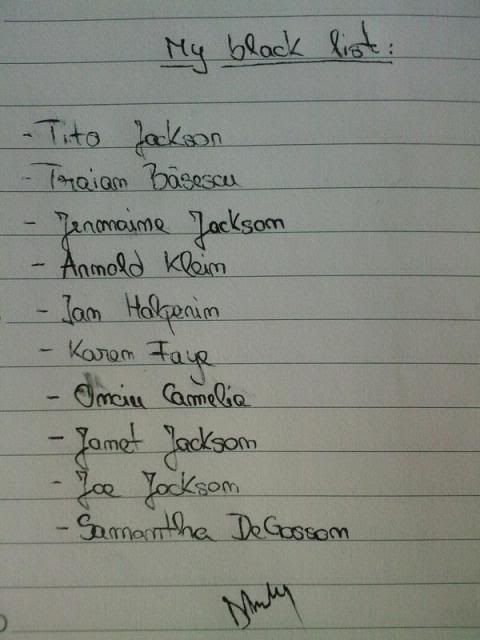 My black list:
- Tito Jackson
- Traian Băsescu
- Jeromaime Jackson
- Arnold Klein
- Ian Halperin
- Karen Faye
- Onciu Camelia
- Janet Jackson
- Joe Jackson
- Samantha DeGosson